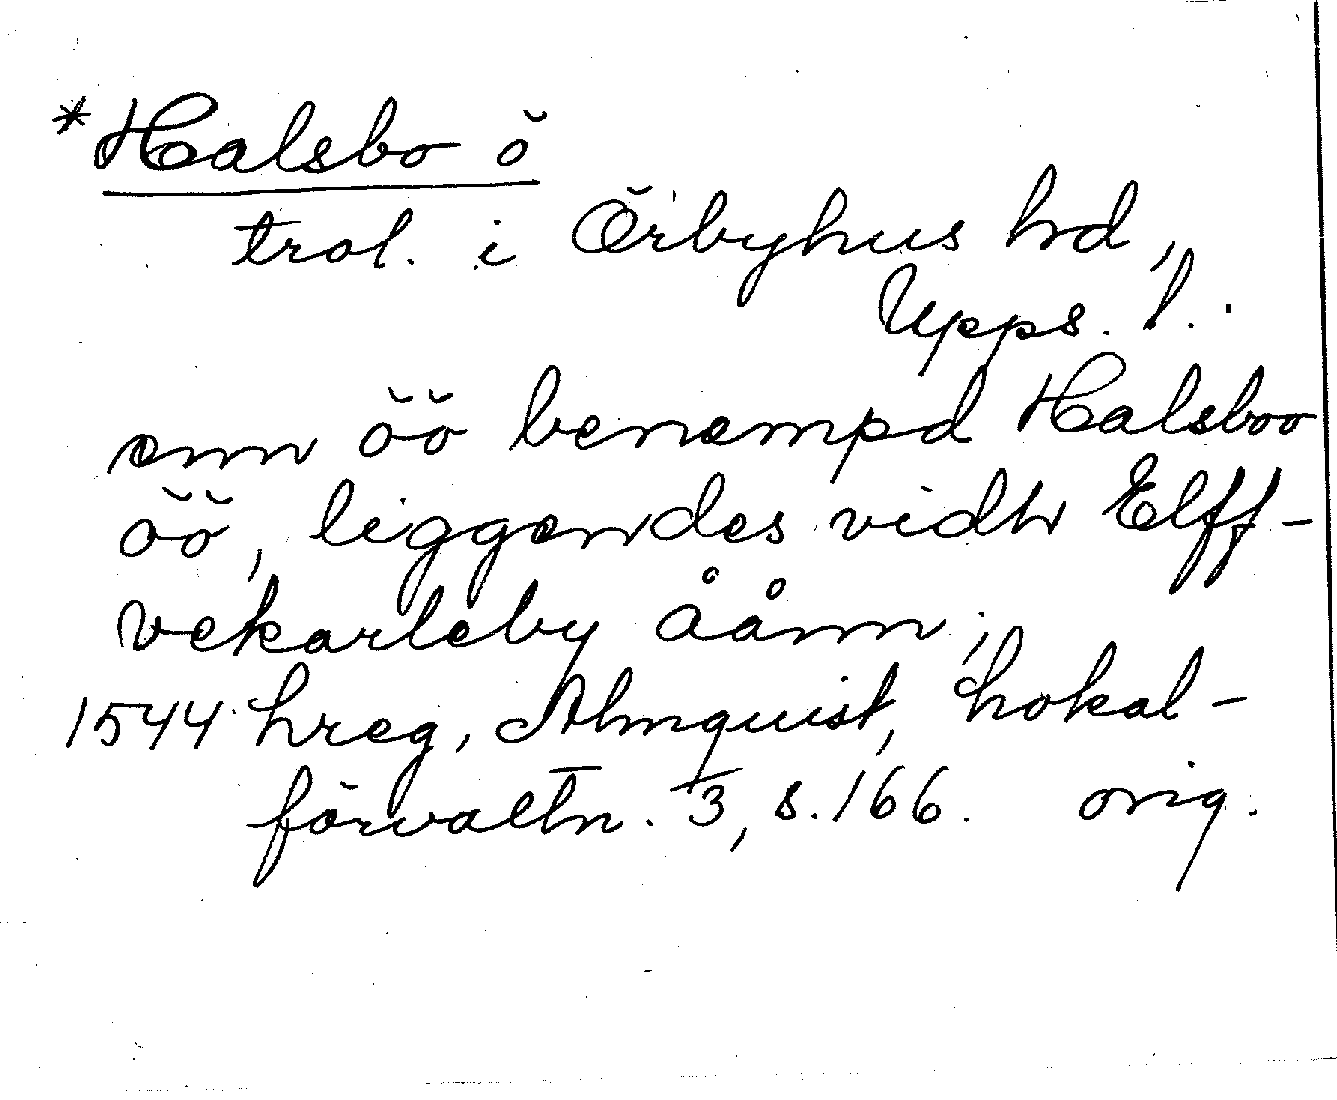 *Halsbo ö
trol. i Örbyhus hd,
Upps. l.
enn öö benempd Halsboo
öö, liggendes vidh Elff-
vekarleby åånn;
1544 hreg, Almquist, Lokal-
förvaltn. 3, s. 166. orig.